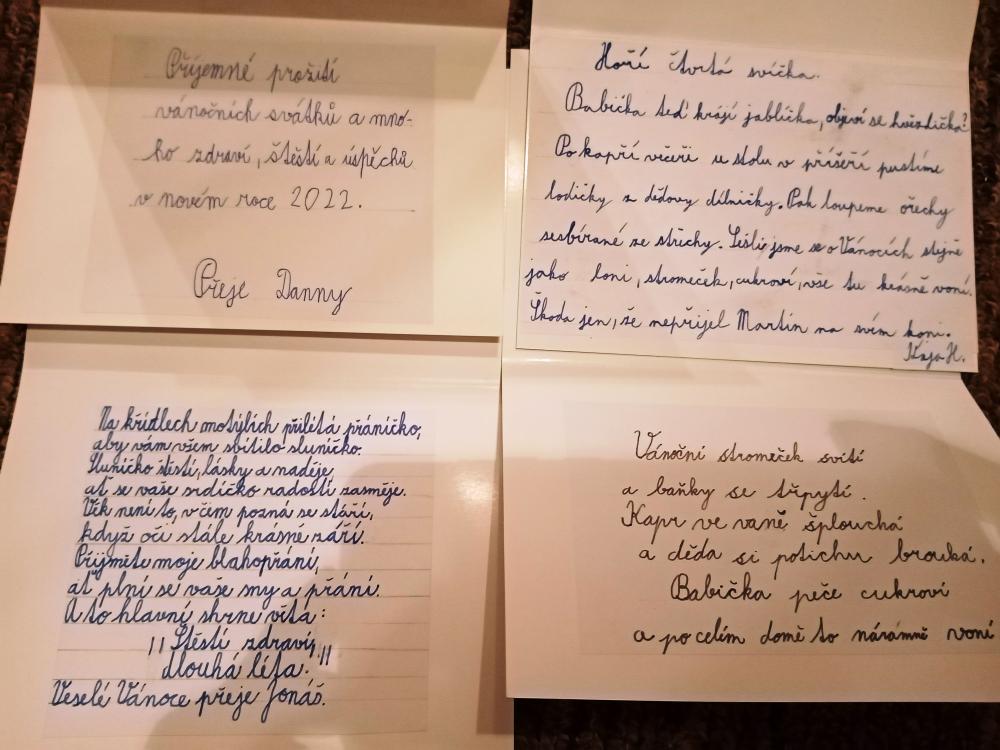 Příjemné prožití
vánočních svátků a mno-
ho zdraví, štěstí a úspěchů
v novém roce 2022.
Přeje Danny
Hoří čtvrtá svíčka.
Babička teď krájí jablíčka, objeví se hvězdička?
Po kapří večeři u stolu v příšeří pustíme
lodičky z dědovy dílničky. Pak loupeme ořechy
sesbírané ze střechy. Sešli jsme se o Vánocích stejně
jako loni, stromeček, cukroví, vše tu krásně voní.
Škoda jen, že nepřijel Martin na svém koni.
Kája H.
Na křídlech motýlích přilétá přáníčko,
aby vám všem svítilo sluníčko.
Sluníčko štěstí, lásky a naděje,
ať se vaše srdíčko radostí zasměje.
Věk není to, v čem pozná se stáří,
když oči stále krásně září.
Přijměte moje blahopřání,
ať plní se vaše sny a přání.
A to hlavní shrne věta:
"Štěstí, zdraví,
dlouhá léta."
Veselé Vánoce přeje Jonáš.
Vánoční stromeček svítí
a baňky se třpytí.
Kapr ve vaně šplouchá
a děda si potichu brouká.
Babička peče cukroví
a po celím domě to náramně voní